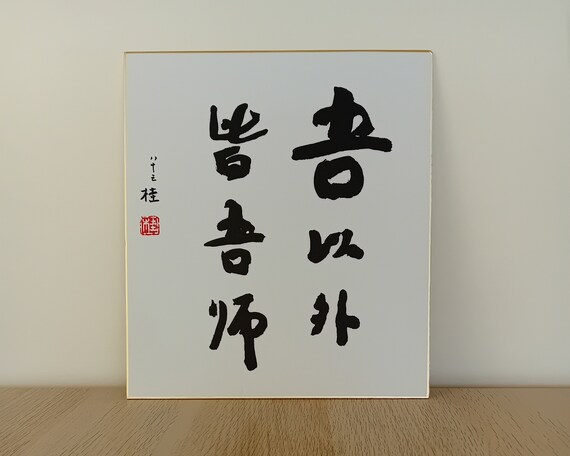 吾以外
皆吾師
八十三 桂